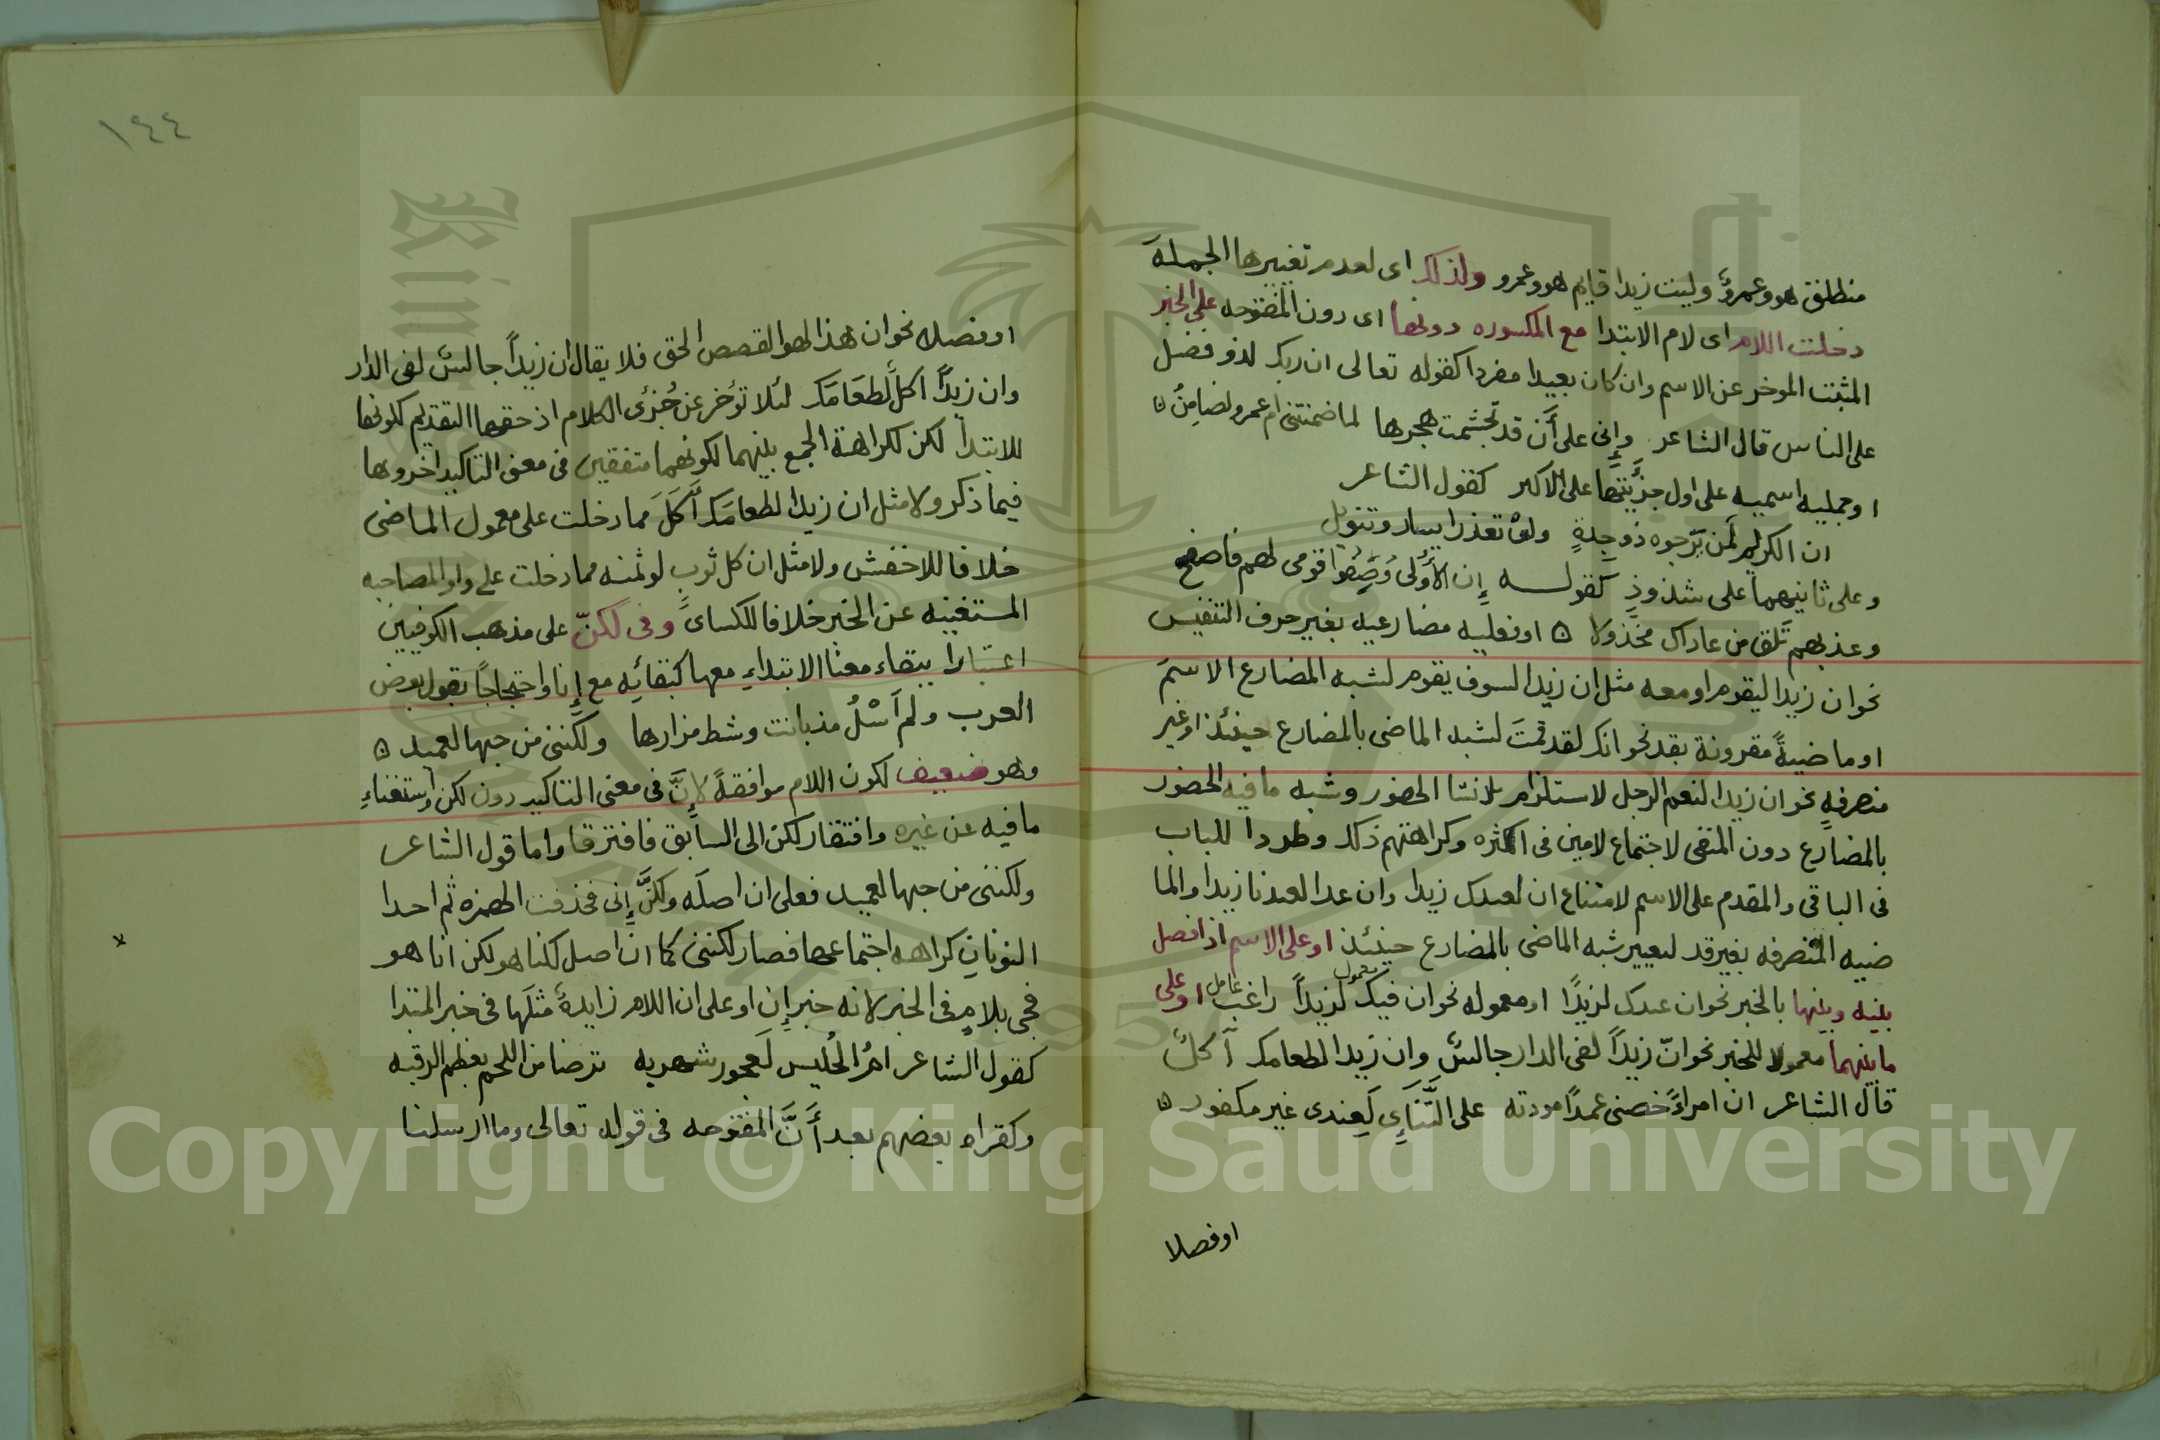 منطلق هو وعمرو وليت زيدا قايم هو وعمرو ولذلك اى لعدم تغييرها الجملة
دخلت اللام اى لام الابتدا مع المكسوره دونها اى دون المفتوحه على الخبر
المثبت الموخر عن الاسم وان كان بعيدا مفردا كقوله تعالى ان ربك لذو فضل
على الناس قال الشاعر وإنى على أن قد تجشمت هجرها لما ضمنتنى ام عمرو لضامِنُ
او جمليه اسميه على اول جزئيتها على الاكثر كقول الشاعر
ان الكريم لمن يرجوه ذو جِدةٍ ولو تعذر ايسار وتنويل
وعلى ثانيهما على شذوذٍ كقوله إن الأُولى وَصَفوا قومى لهم فاصفح
وعذبهم تلق من عاداك مخذولا ه او فعليه مضارعيه بغير حرف التنفيس
نحو ان زيدا ليقوم او معه مثل ان زيدا لسوف يقوم لشبه المضارع الاسمَ
او ماضيةً مقرونة بقد نحو انك لقد قمتَ لشبه الماضى بالمضارع حينئذ او غير
منصرفهٍ نحو ان زيدا لنعم الرجل لاستلزام بلانشا الحضور وشبه ما فيه الحضور
بالمضارع دون المنفى لاجتماع لامين فى اكثره وكراهتهم ذلك وطردا للباب
فى الباقى والمقدم على الاسم لامتناع ان لعندك زيدا وان عدا لعندنا زيدا والما
ضيه المنصرفه بغير قد لتعيير شبه الماضى بالمضارع حينئذ او على الاسم اذا فصل
بينه وبينها بالخبر نحو ان عندك لزيدًا او معموله نحو ان فيك لزيداً راغب او على
معمول عامل
ما بينهما معمولا للخبر نحو انّ زيداً لفى الدار جالسٌ وان زيدا لطعامك آكلٌ
قال الشاعر ان امراءً خصنى عمدًا مودته على التَّنَايِ لَعِندى غير مكفور ه
او فصلا
١٤٤
او فصله نحو ان هذا لهو القصص الحق فلا يقال ان زيداً جالسٌ لفى الدار
وان زيدًا آكلٌ لطعَامَك لئلا تؤخر عن جُزئى الكلام اذ حقها التقديم لكونها
للابتدا لكن لكراهة الجمع بينهما لكونهما متفقين فى معنى التاكيد اخروها
فيما ذكر ولا مثل ان زيدا لطعامَك أَكَلَ مما دخلت على معمول الماضى
خلافا للاخفش ولا مثل ان كل ثوبٍ لو ثمنه مما دخلت على واو المصاحبه
المستغنيه عن الخبر خلافا للكساى وفى لكنّ على مذهب الكوفيين
اعتبارا ببقاء معنا الابتداءِ معها كبقائِه مع إنا واحتجاجًا بقول بعض
العرب ولم اَسْلُ مذ بانت وشط مزارها ولكننى من حبها لعميد ه
وهو ضعيف لكون اللام موافقةً لإنَّ فى معنى التاكيد دون لكن واستغناءِ
ما فيه عن غيره وافتقار لكن الى السابق فافترقا واما قول الشاعر
ولكننى من حبها لعميد فعلى ان اصلَه ولكنَّ إنى فحذفت الهمزه ثم احدا
النونانِ كراهه اجتماعها فصار لكننى كما ان اصل لكنا هو لكن انا هو
فجى بلامٍ فى الخبر لانه خبر إن او على ان اللام زايدةً مثلَها فى خبر المبتدا
كقول الشاعر امُ الحُليس لَعجوز شهربه ترضا من اللحم بعظم الرقبه
وكقراه بعضهم بعد أَنَّ المفتوحه فى قوله تعالى وما ارسلنا
Copyright © King Saud University